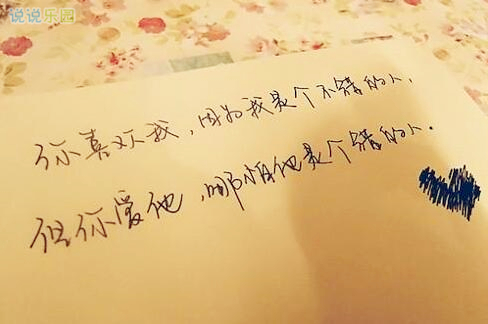 说说乐园
你喜欢我，因为我是个不错的人，
但你爱他，哪怕他是个错的人．